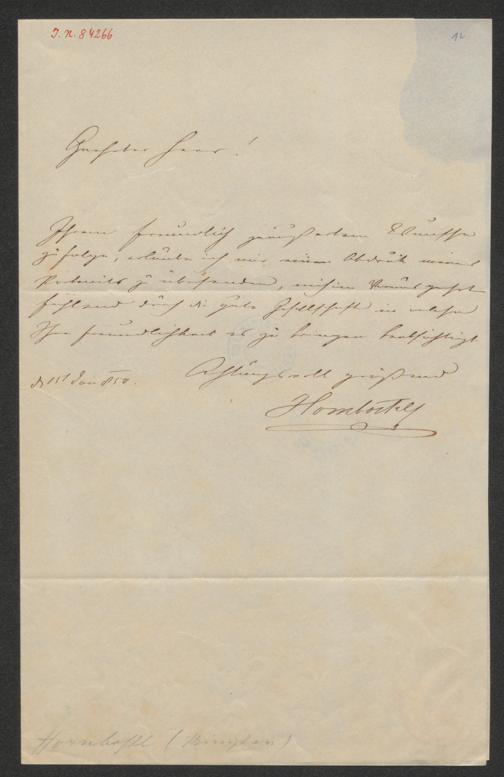 I. N. 84266
12
Geehrter Herr!
Ihrem freundlich geäußerten Wunsche
zu folge, erlaube ich mir einen Abdruck meines
Portraits zu übersenden,
fehlend durch die gute Gesellschaft in welche
Ihre Freundlichkeit es zu bringen beabsichtigt
Achtungsvoll grüßend
d 15t 850.
Hornbostel
Hornbostel (Minister)